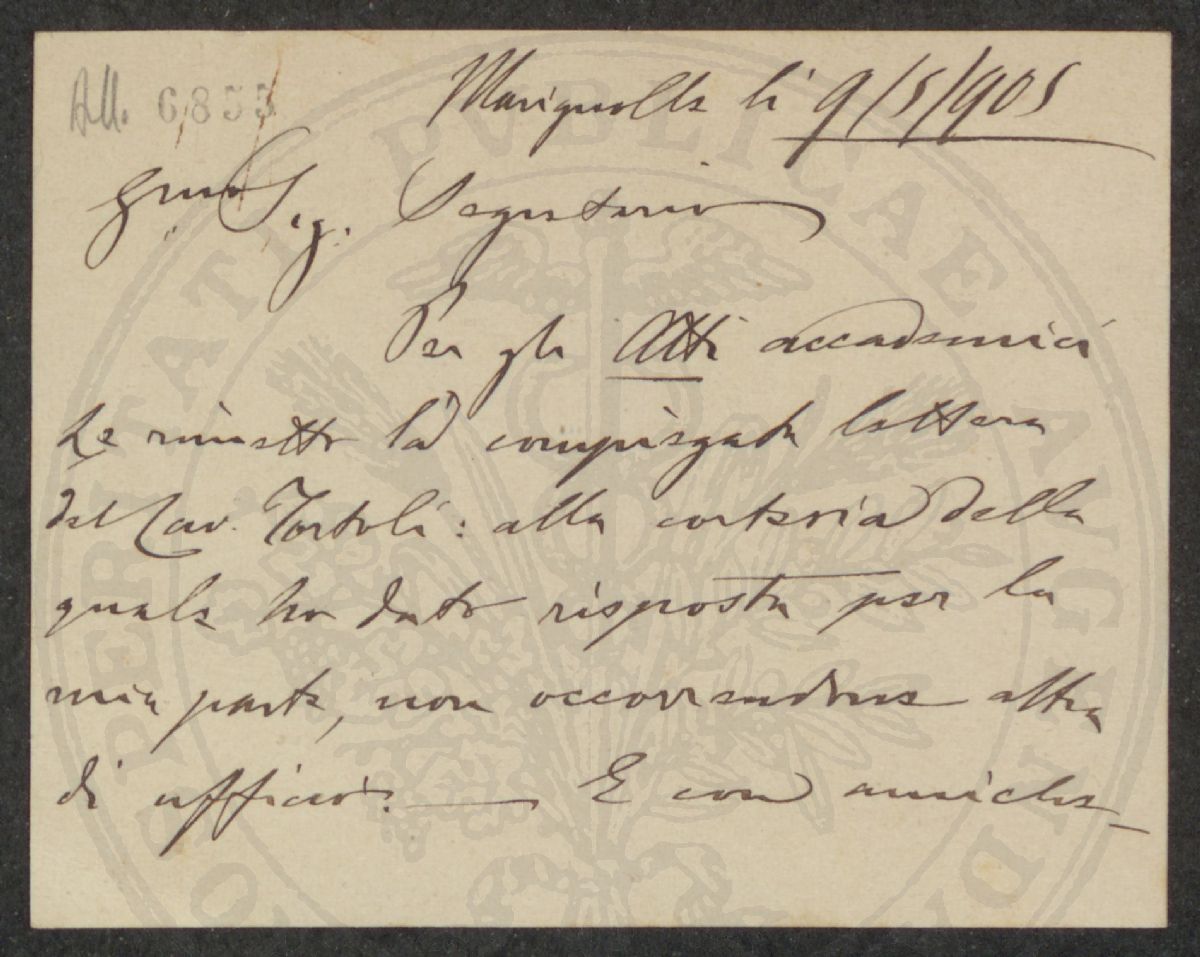 All. 6855
Marignolle li 9/5/905
Gmo Sig. Segretario
Per gli Atti accademici
Le rimetto la compiegata lettera
del Cav. Tortoli: alla cortesia della
quale ho dato risposta per la
mia parte, non occorrendone altra
di ufficio. — E con amiche-
PROSPERITATI PVBLICAE AVGENDAE